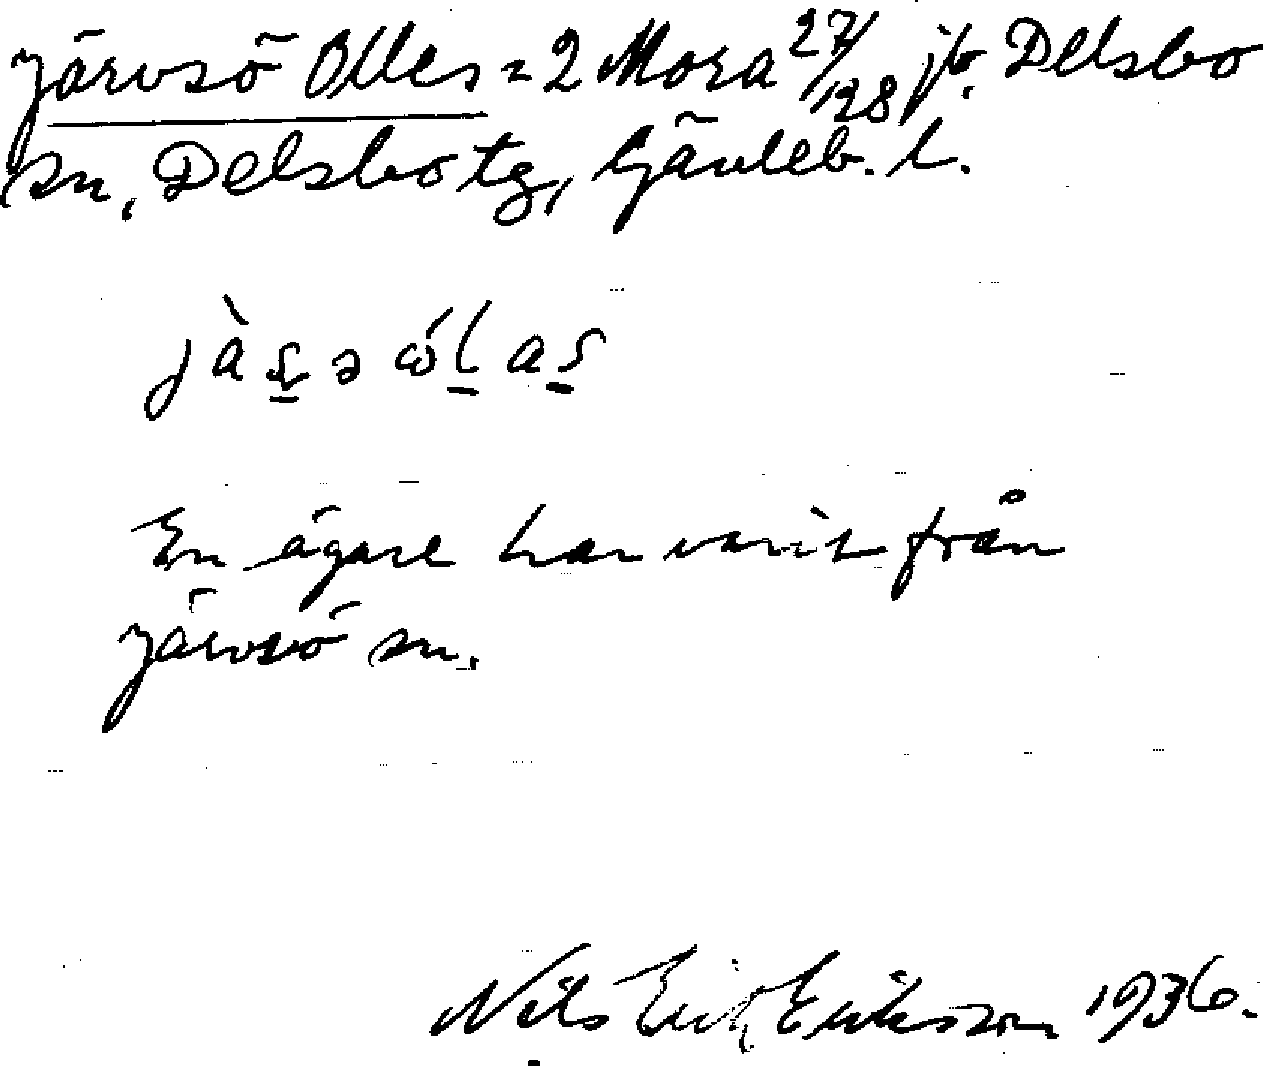 Järvsö Olles = 2 Mora 27/128 jb. Delsbo
sn, Delsbo tg, Gävleb. l.
En ägare har varit från
Järvsö sn.
Nils Erik Eriksson 1936.